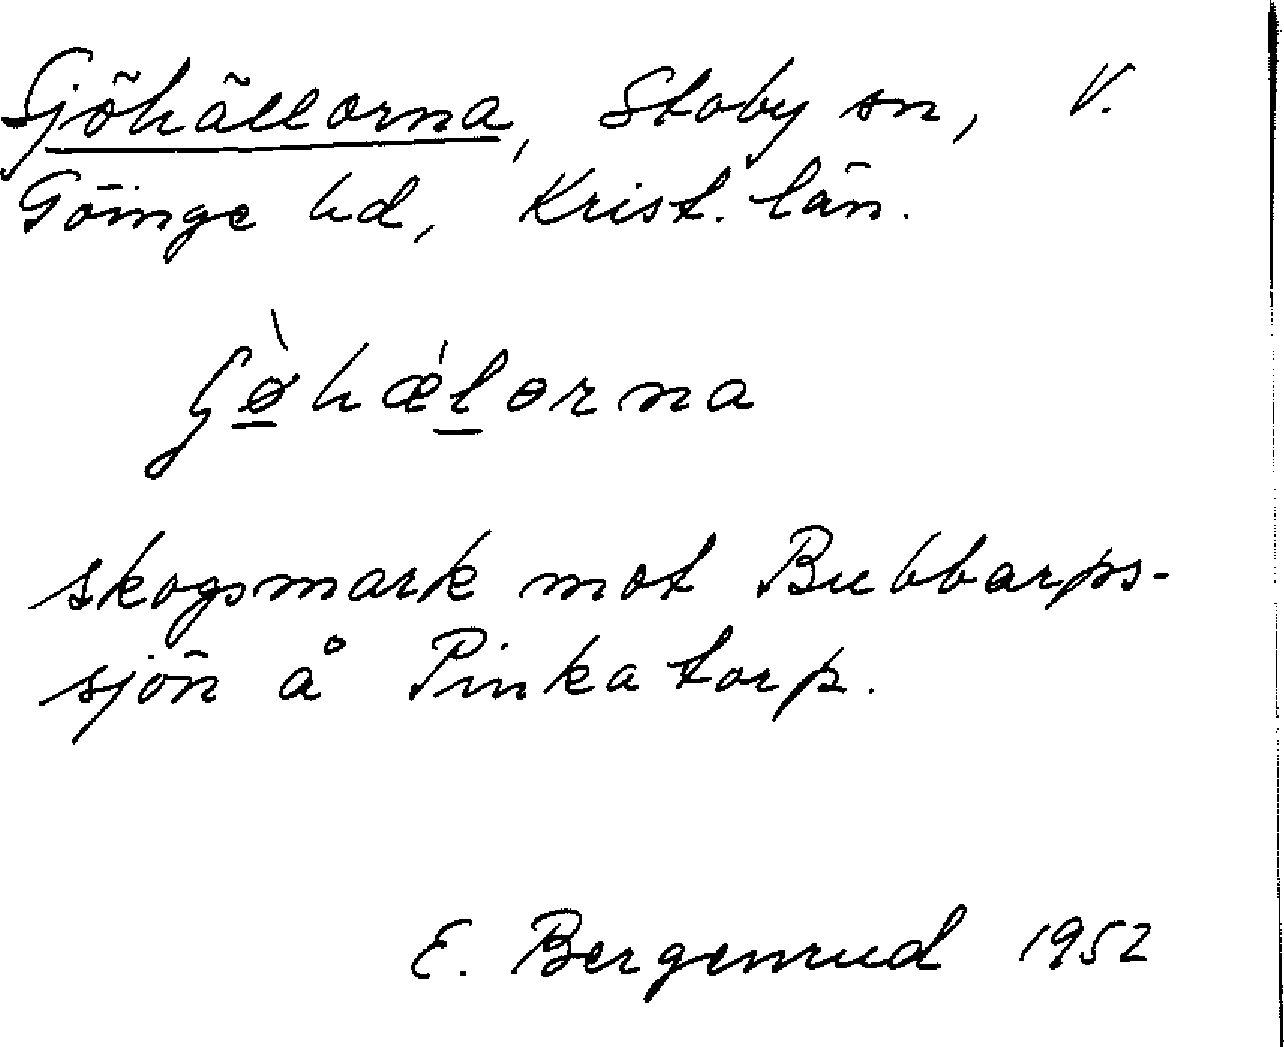 Sjöhällorna, Stoby sn, V.
Göinge hd, Krist. län.
ʃø̱̀hǽḻorna
skogsmark mot Bubbarps-
sjön å Pinkatorp.
E. Bergenrud 1952